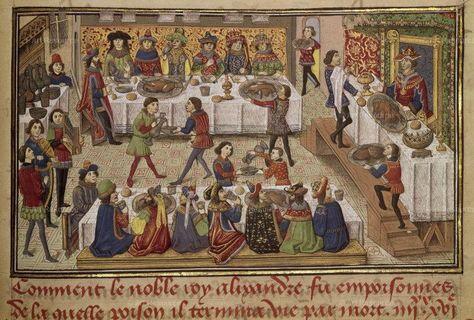 Comment le noble roy alixandre fu empoisonnes
De la quelle poison il termina vie par mort.